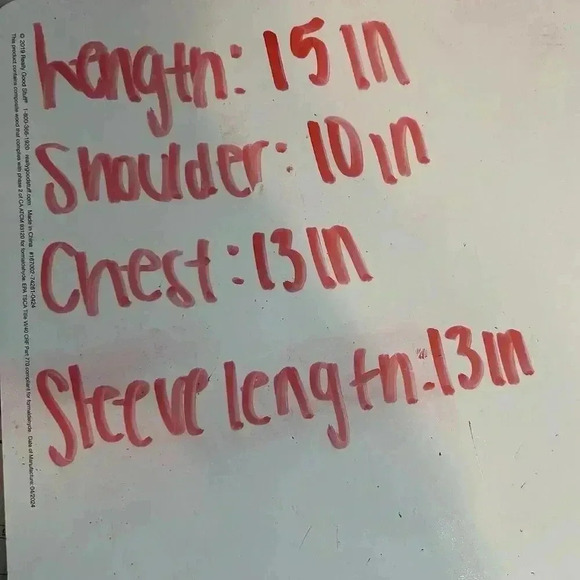 Length: 15 in
Shoulder: 10 in
Chest: 13 in
Sleeve length: 13 in
© 2019 Really Good Stuff® 1-800-366-1920 reallygoodstuff.com Made in China #167002-74281-0424
This product contains composite wood that complies with phase 2 of CA ATCM 93120 for formaldehyde. EPA TSCA Title VI/40 CRF Part 770 compliant for formaldehyde. Date of Manufacture: 04/2024